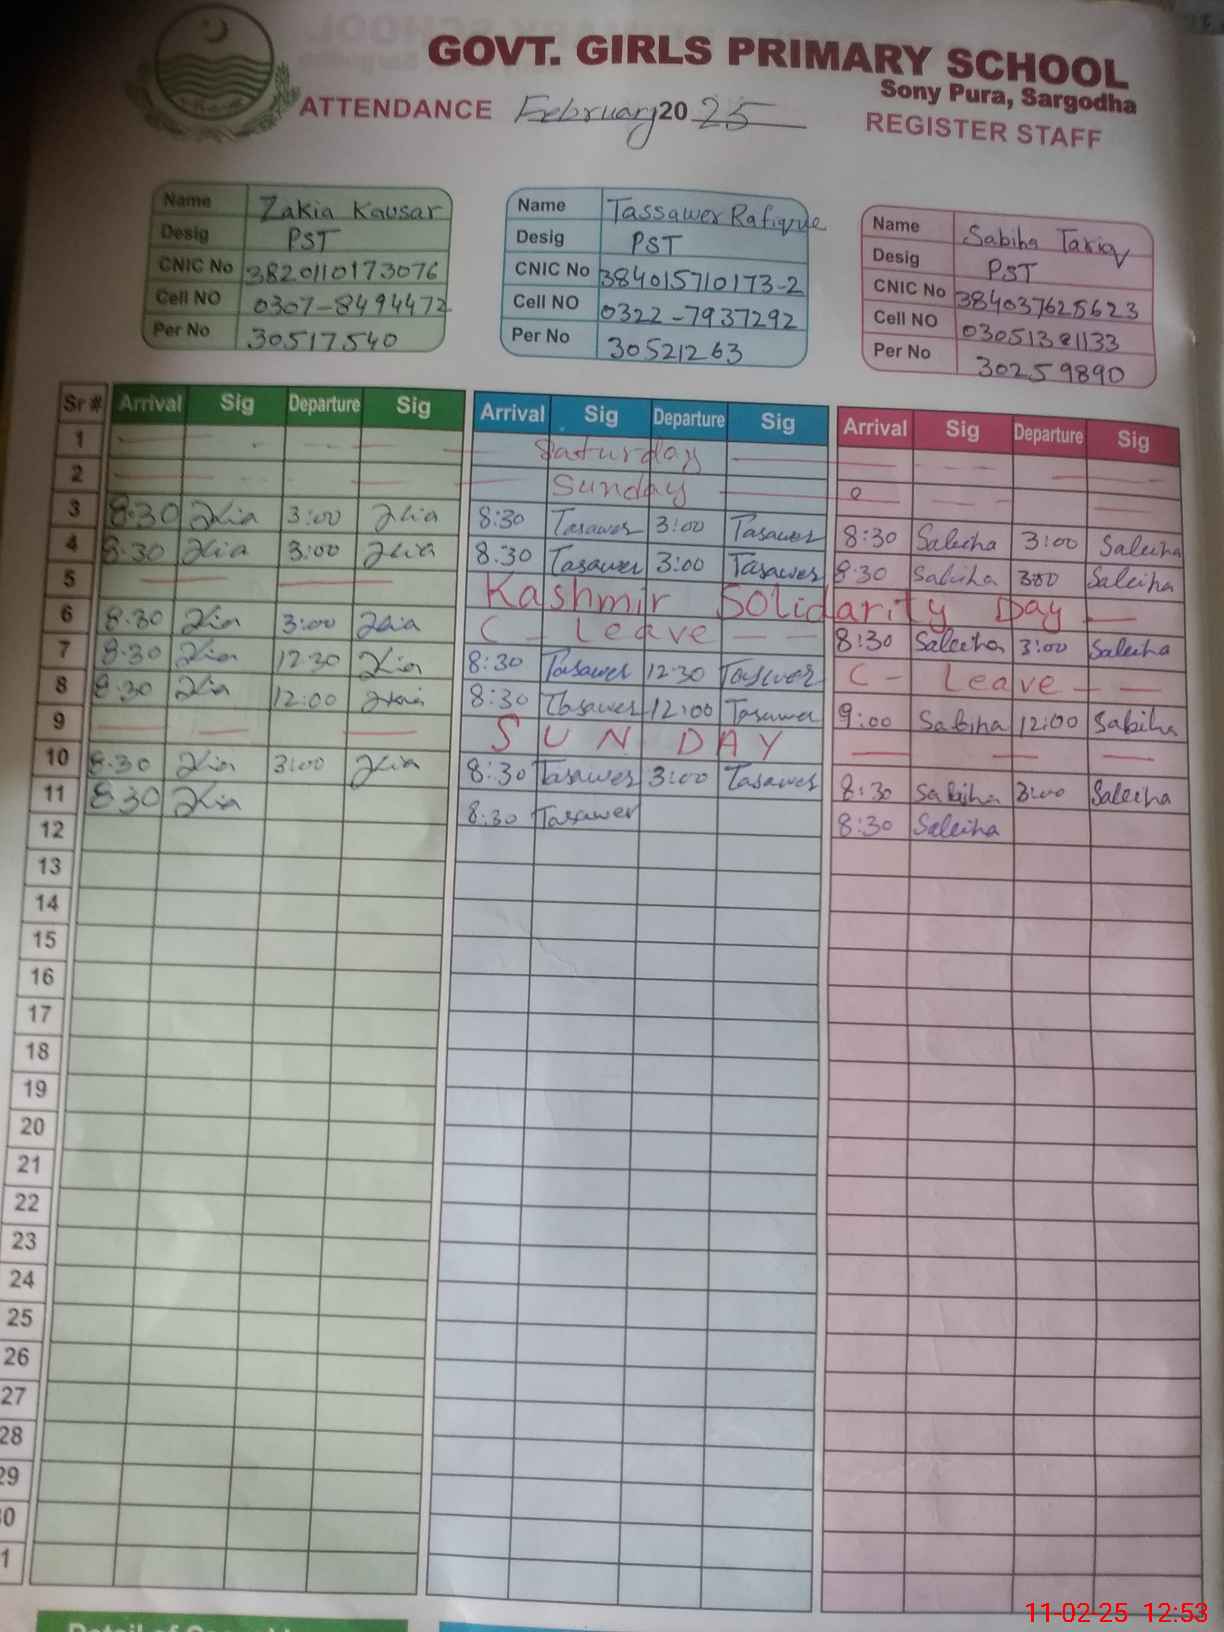 GOVT. GIRLS PRIMARY SCHOOL
Sony Pura, Sargodha
ATTENDANCE February 2025
REGISTER STAFF
Name Zakia Kausar
Desig PST
CNIC No 3820110173076
Cell NO 0307-8494472
Per No 30517540
Name Tassawer Rafique
Desig PST
CNIC No 384015710173-2
Cell NO 0322-7937292
Per No 30521263
Name Sabiha Tariq
Desig PST
CNIC No 384037625623
Cell NO 03051381133
Per No 30259890
Sr # Arrival Sig Departure Sig Arrival Sig Departure Sig Arrival Sig Departure Sig
1 Saturday
2 Sunday
3 8:30 3:00 8:30 Tasawer 3:00 Tasawer 8:30 3:00
4 8:30 3:00 8:30 Tasawer 3:00 Tasawer 8:30 Sabiha 3:00
5 Kashmir Solidarity Day
6 8:30 3:00 C - Leave 8:30 3:00
7 8:30 12:30 8:30 Tasawer 12:30 Tasawer C - Leave
8 8:30 12:00 8:30 Tasawer 12:00 Tasawer 9:00 Sabiha 12:00 Sabiha
9 SUNDAY
10 8:30 3:00 8:30 Tasawer 3:00 Tasawer 8:30 Sabiha 3:00
11 8:30 8:30 Tasawer 8:30
12
13
14
15
16
17
18
19
20
21
22
23
24
25
26
27
28
29
0
1
11-02-25 12:53